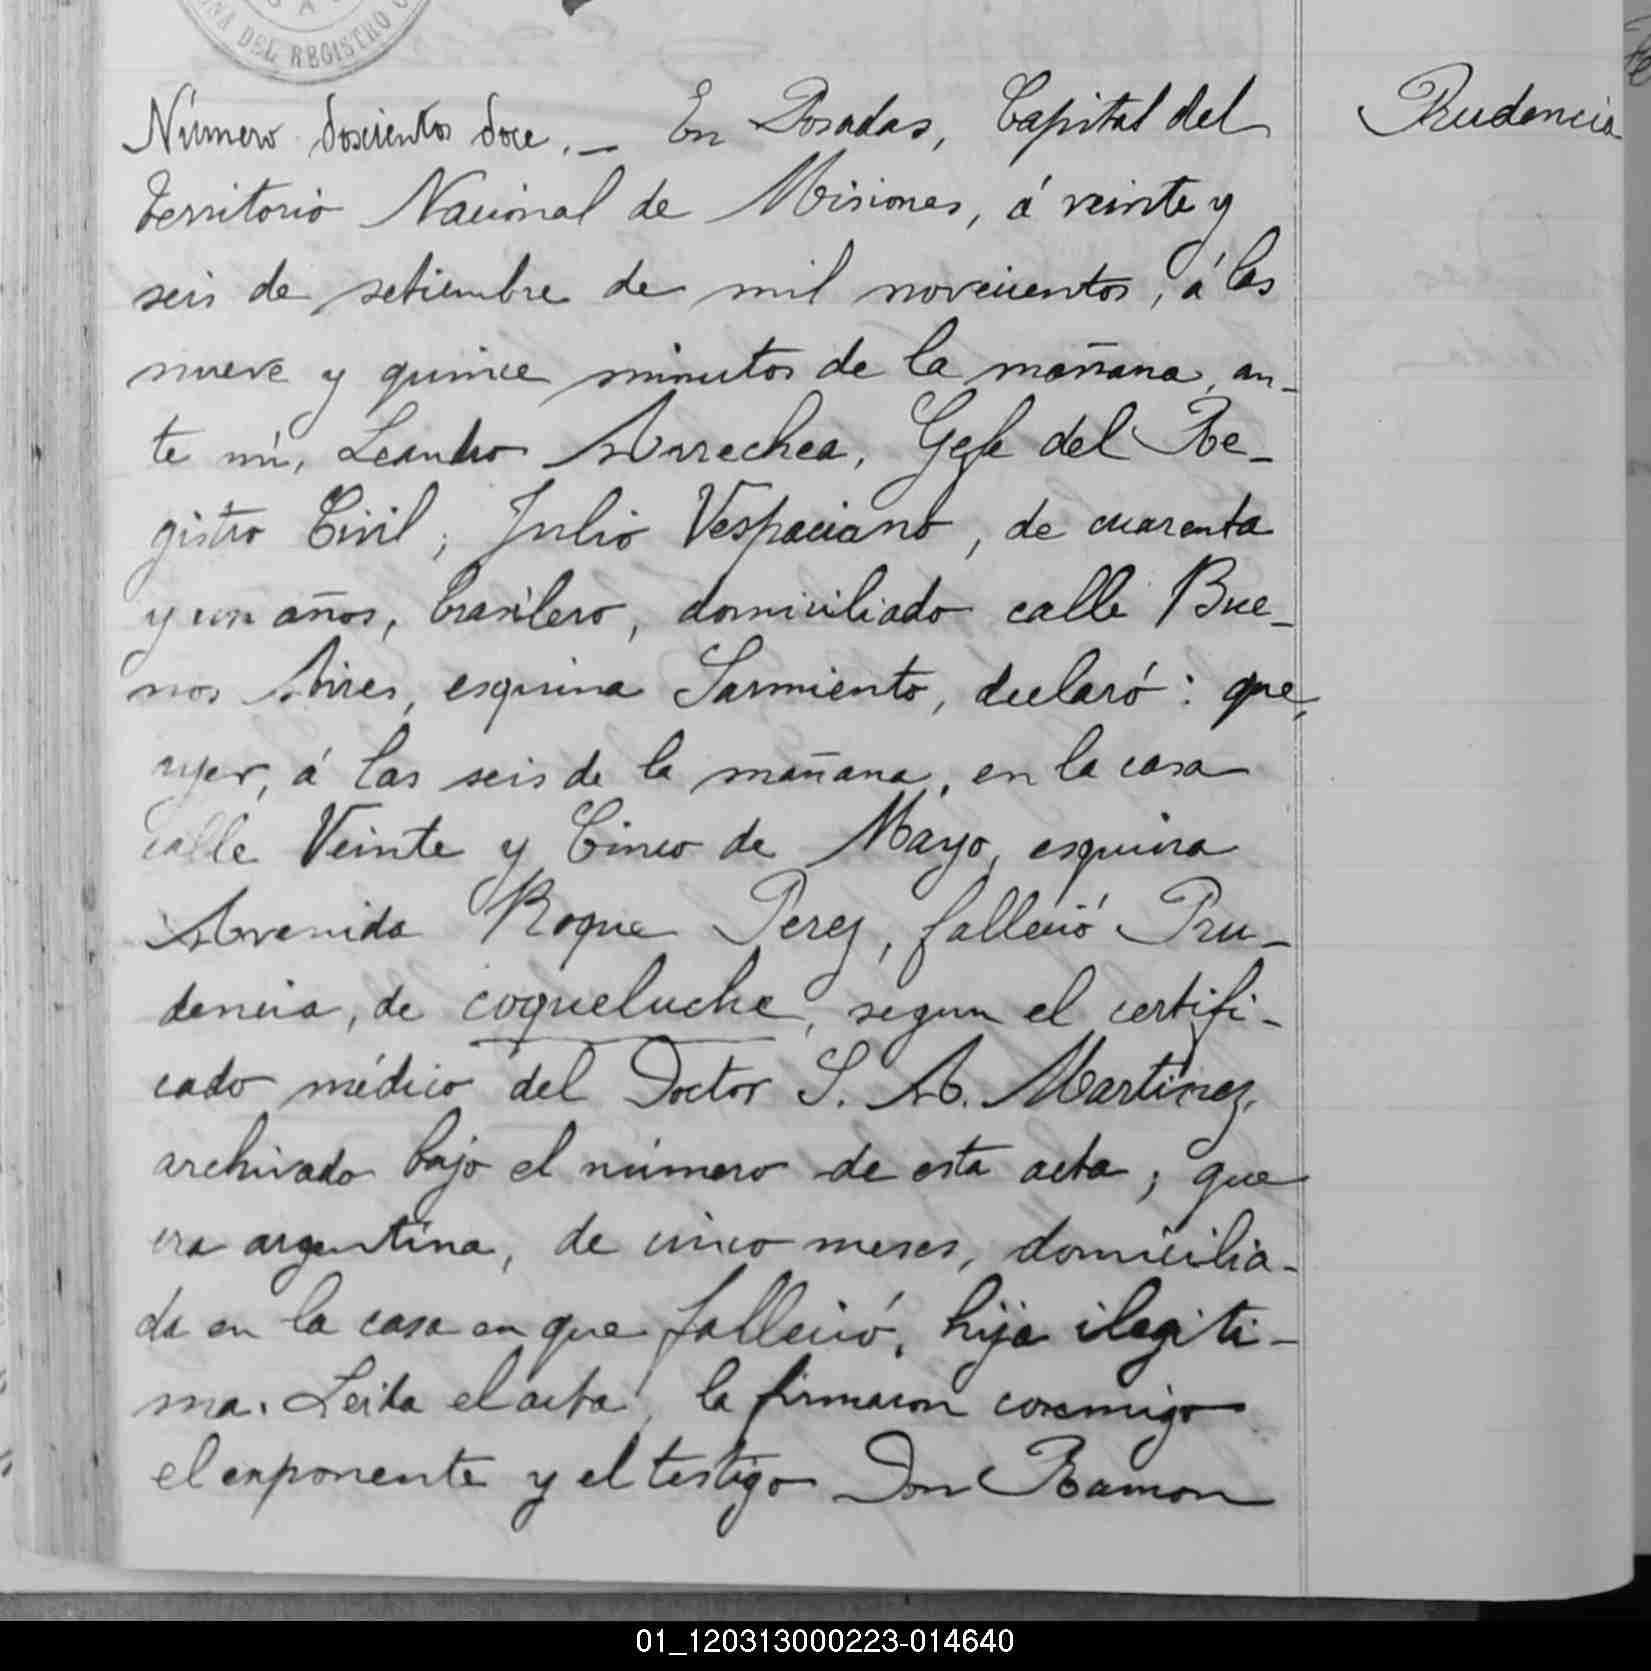 DEL REGISTRO
Número doscientos doce._ En Posadas, Capital del
Prudencia
Territorio Nacional de Misiones, á veinte y
seis de setiembre de mil novecientos, á las
nueve y quince minutos de la mañana, an-
te mí, Leandro Arrechea, Gefe del Re-
gistro Civil; Julio Vespaciano, de cuarenta
y un años, brasilero, domiciliado calle Bue-
nos Aires, esquina Sarmiento, declaró: que,
ayer, á las seis de la mañana, en la casa
calle Veinte y Cinco de Mayo, esquina
Avenida Roque Perez, falleció Pru-
dencia, de coqueluche, segun el certifi-
cado médico del Doctor S. A. Martinez,
archivado bajo el número de esta acta; que
era argentina, de cinco meses, domicilia-
da en la casa en que falleció, hija ilegiti-
ma. Leida el acta, la firmaron conmigo
el exponente y el testigo Don Ramon
01_120313000223-014640